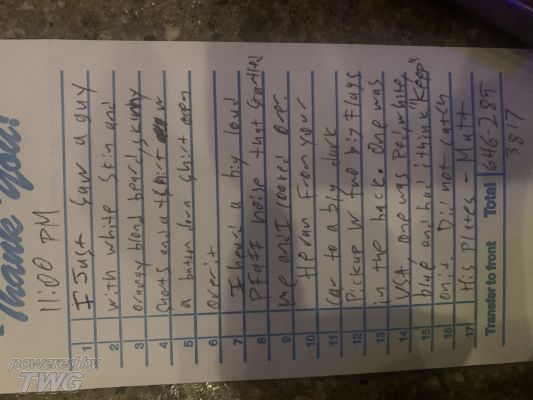 "Thank You!"
11:00 PM
1 I Just saw a guy
2 with white skin and
3 orangy blond beard, skinny
4 shorts and a tshirt w
5 a button down shirt open
6 over it
7 I heard a big loud
8 Pfaff noise that startled
9 me and I looked over
10 He ran from your
11 car to a big dark
12 Pickup w two big flags
13 in the back. One was
14 USA, one was Red, white
15 blue and had i think "Keep"
16 on it. Did not catch
17 His plates - Matt
Transfer to front Total 646-285
3817
powered by
TWG